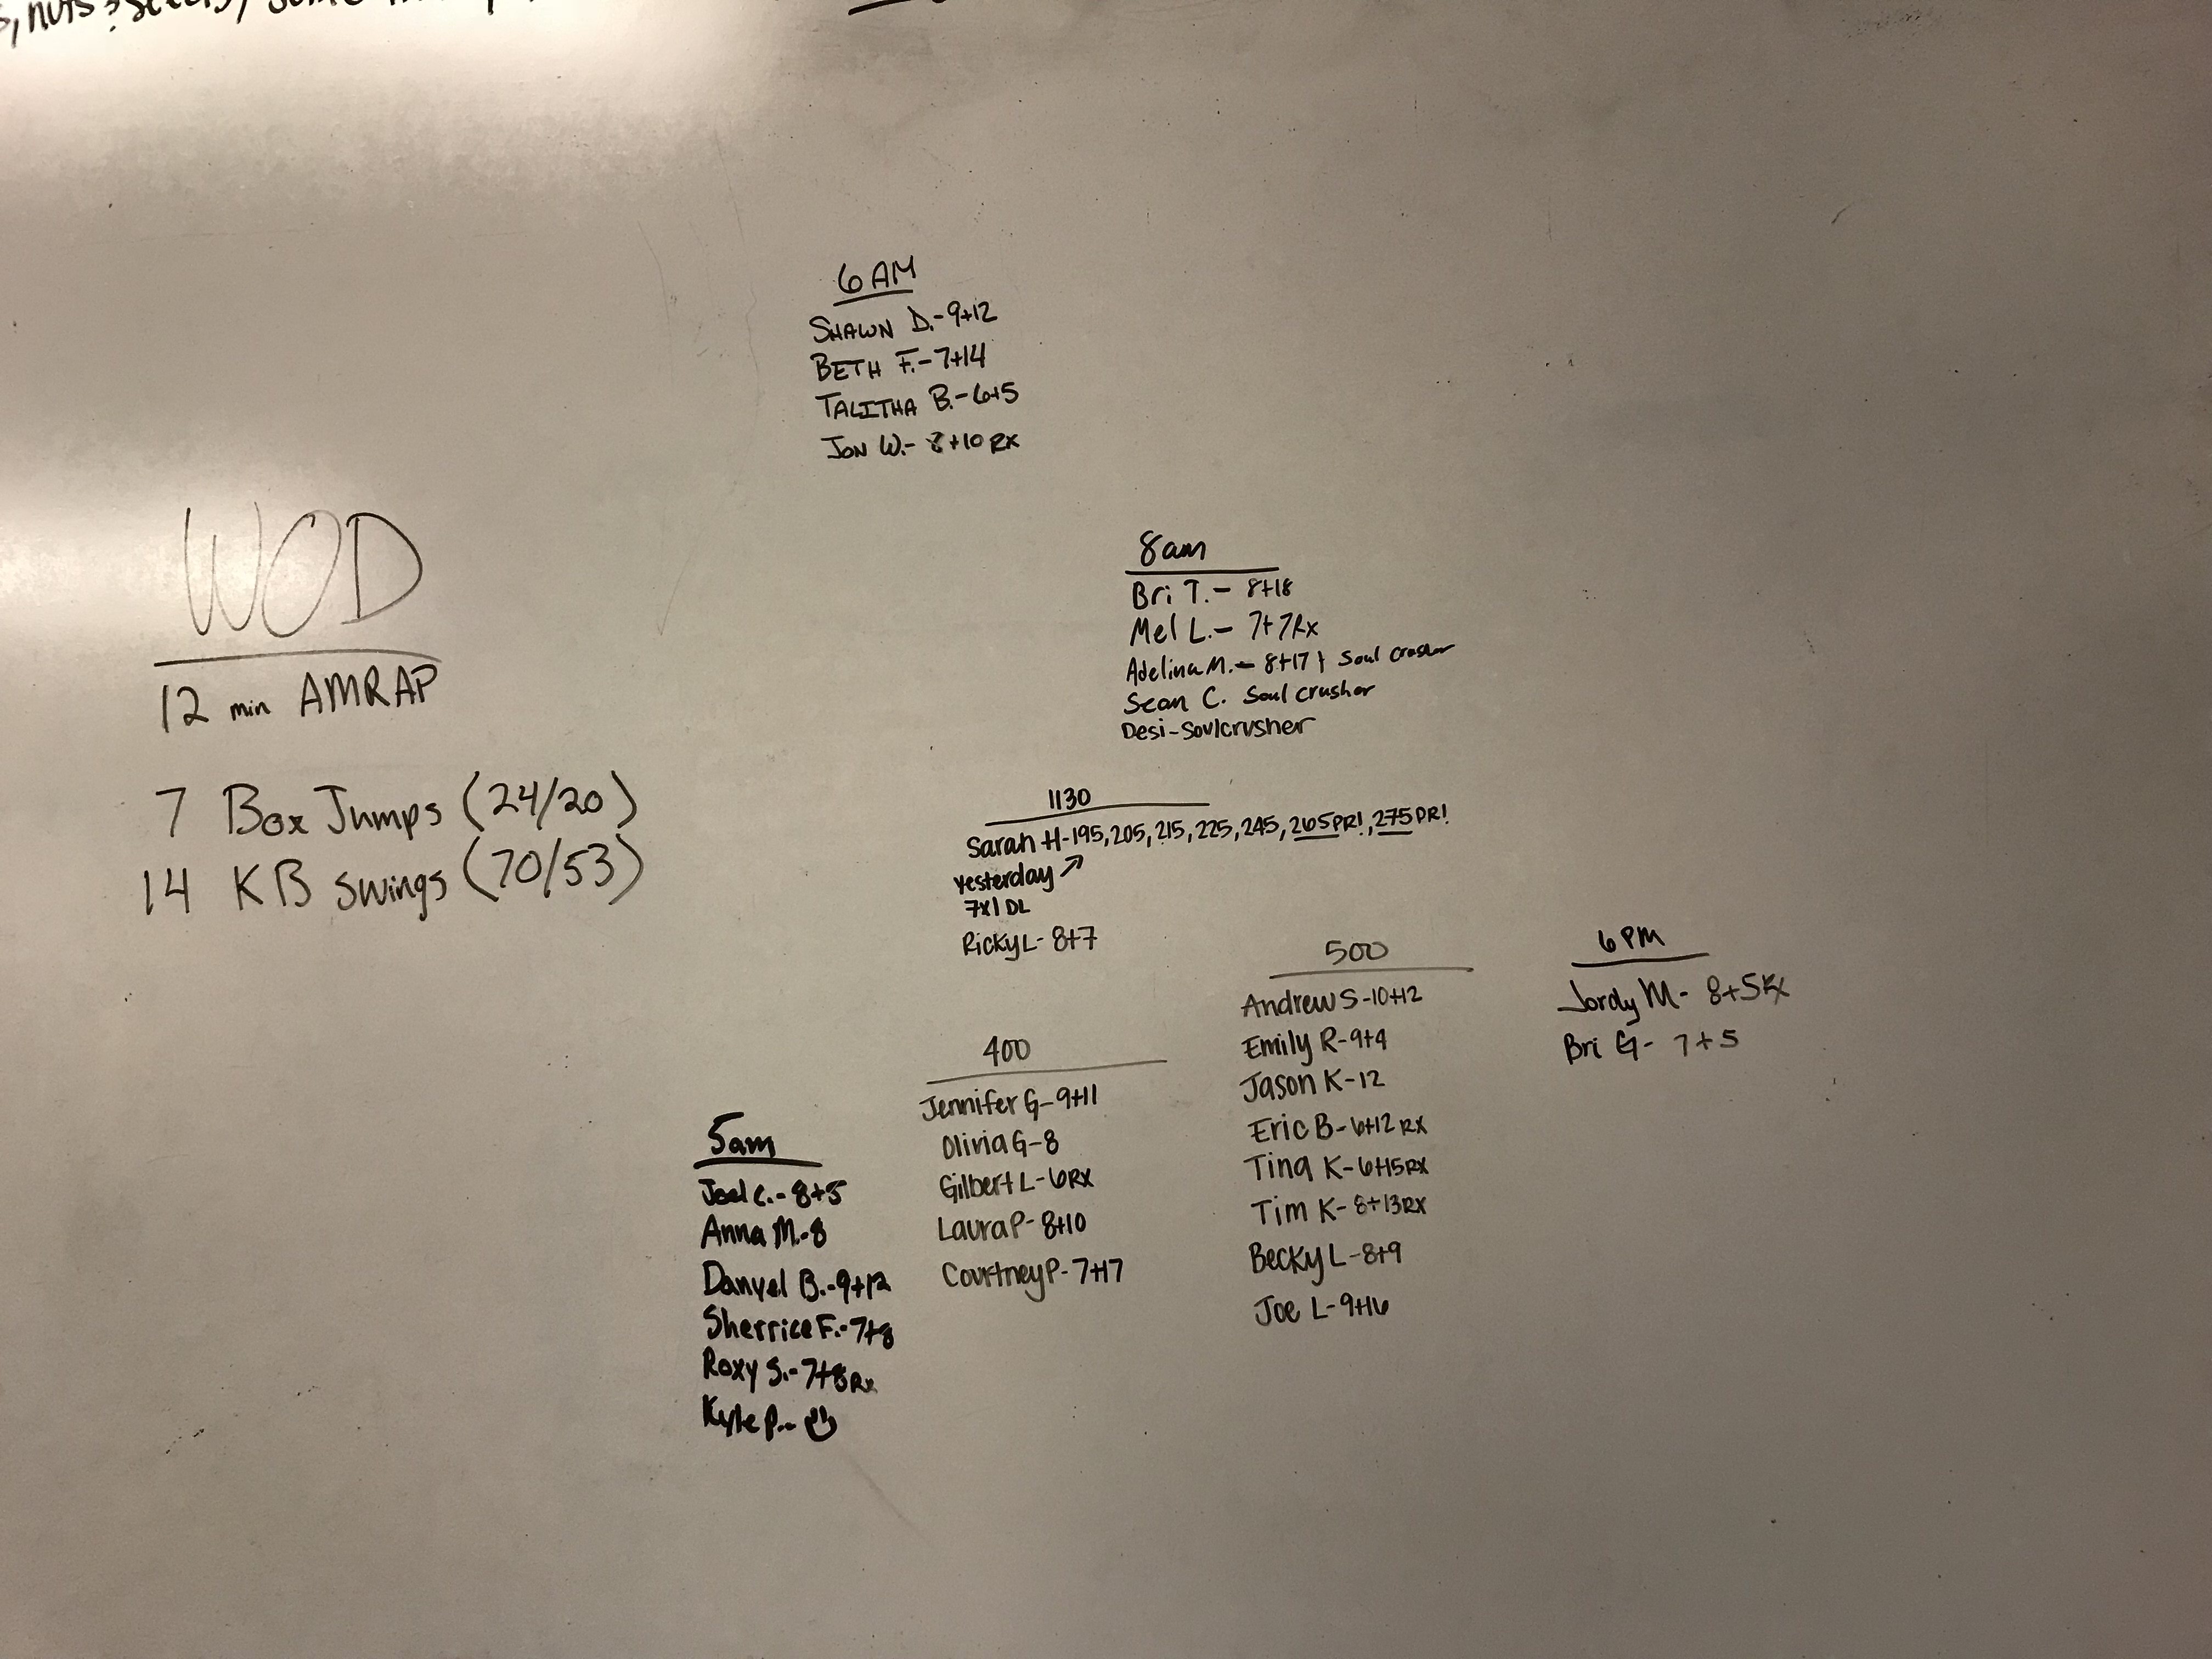 nuts
WOD
12 min AMRAP
7 Box Jumps (24/20)
14 KB swings (70/53)
6 AM
SHAWN D.-9+12
BETH F.-7+14
TALITHA B.-6+5
JON W.- 8+10 RX
8am
Bri T. - 8+18
Mel L. - 7+7Rx
Adelina M. - 8+17 + Soul crusher
Sean C. Soul crusher
Desi-Soulcrusher
1130
Sarah H-195,205,215,225,245,265PR!,275PR!
yesterday ↗
7x1 DL
Ricky L- 8+7
5am
Joel C.-8+5
Anna M.-8
Danyel B.-9+12
Sherrice F.-7+8
Roxy S.-7+8Rx
Kyle P.-
400
Jennifer G-9+11
Olivia G-8
Gilbert L-6RX
Laura P-8+10
Courtney P-7+17
500
Andrew S-10+12
Emily R-9+4
Jason K-12
Eric B-6+12 RX
Tina K-6+15RX
Tim K-8+13RX
Becky L-8+9
Joe L-9+16
6 PM
Jordy M- 8+5Rx
Bri G- 7+5